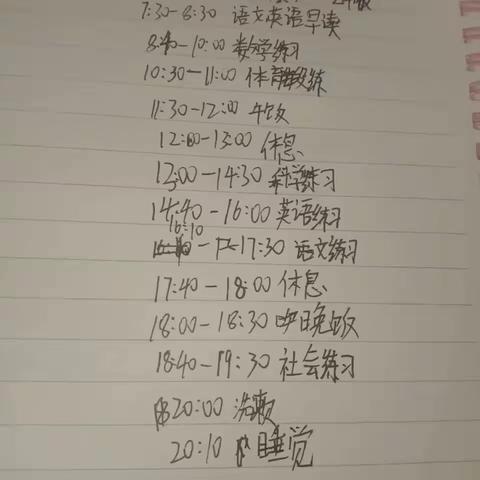 7:30-8:30 语文英语早读
8:40-10:00 数学练习
10:30-11:00 体育锻练
11:30-12:00 午饭
12:00-13:00 休息
13:00-14:30 科学练习
14:40-16:00 英语练习
16:10-17:30 语文练习
17:40-18:00 休息
18:00-18:30 晚饭
18:40-19:30 社会练习
20:00 洗漱
20:10 睡觉